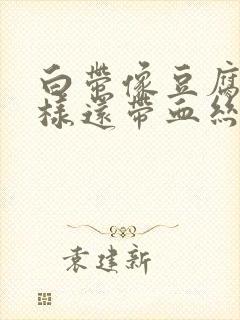 白带像豆腐
樣還帶血絲
袁建新